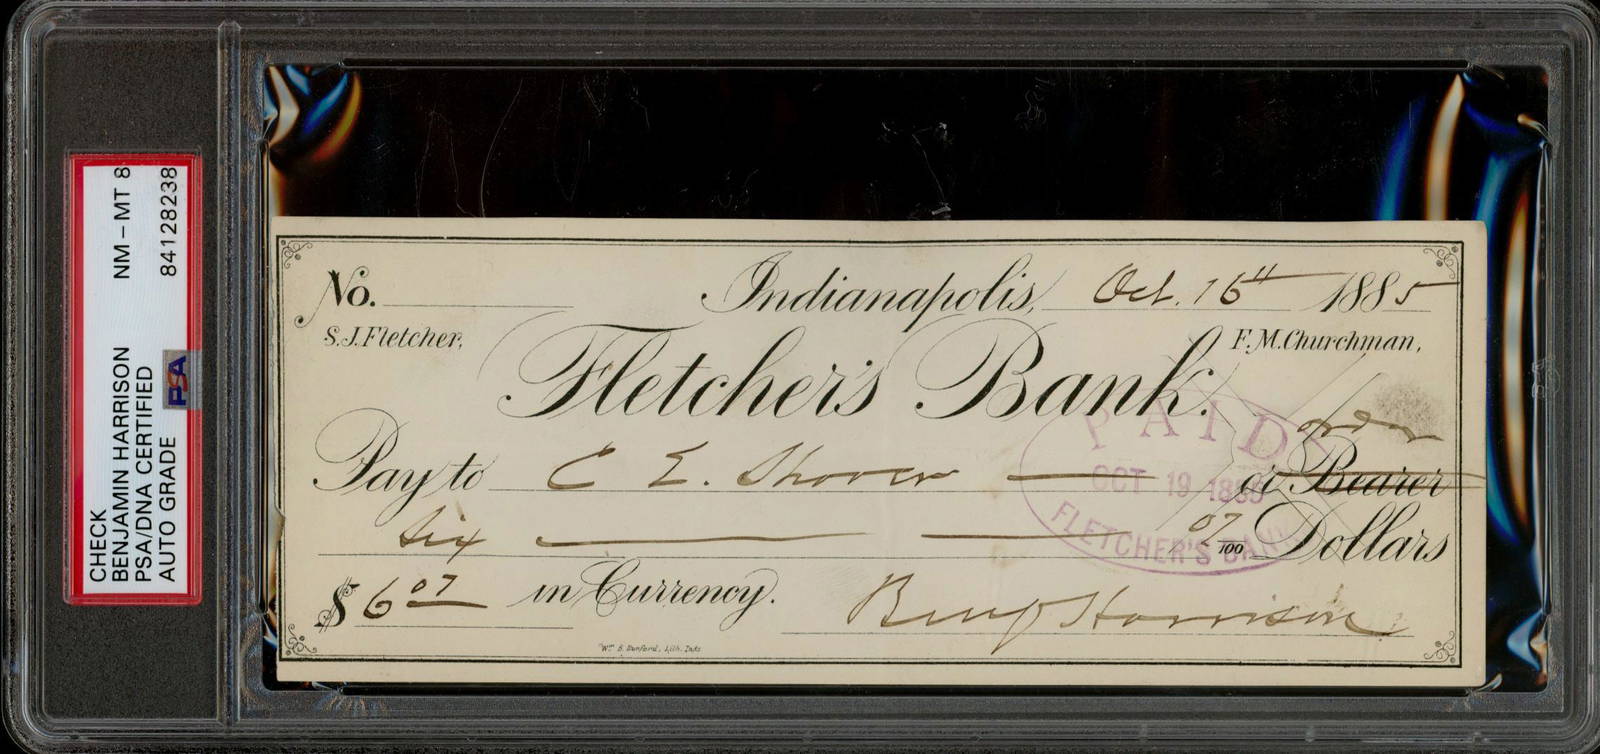 CHECK NM-MT 8
BENJAMIN HARRISON
PSA/DNA CERTIFIED
AUTO GRADE 84128238
PSA
No. Indianapolis, Oct. 16th 1885
S.J. Fletcher, F.M. Churchman,
Fletcher's Bank.
order
Pay to C E. Shover or Bearer
Six 07/100 Dollars
$ 6 07 in Currency. Benj Harrison
PAID
OCT 19 1885
FLETCHER'S BANK
Wm. B. Burford, Lith. Inds